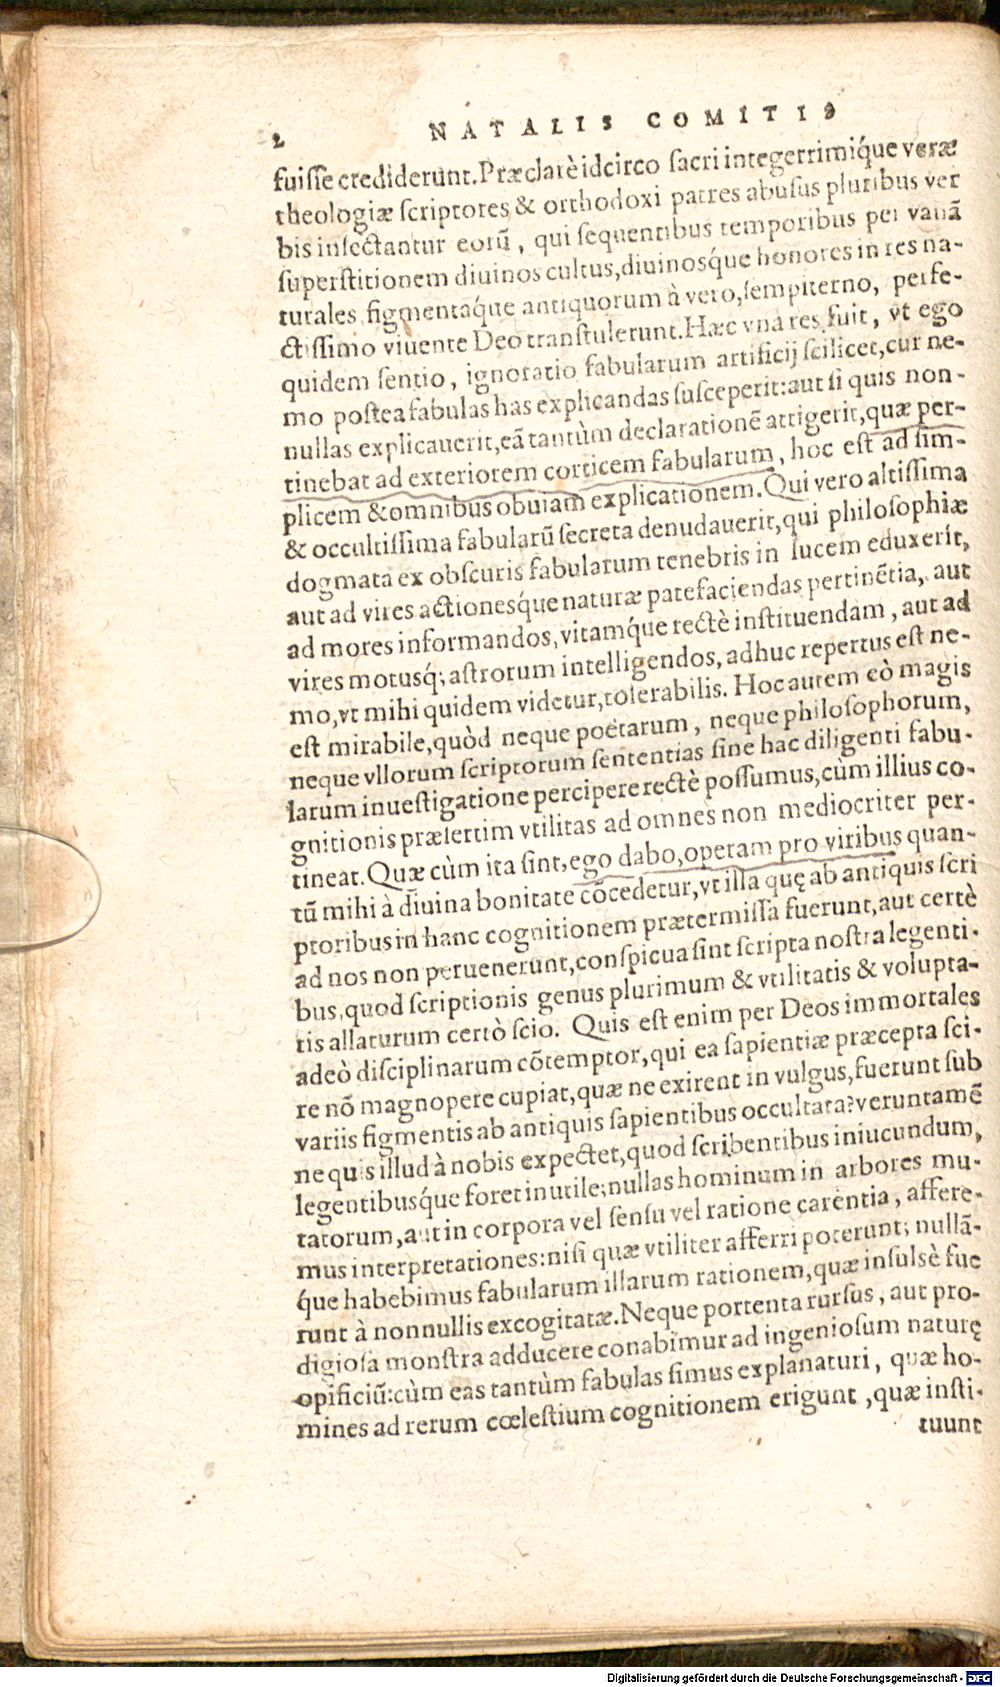 2 NATALIS COMITIS
fuisse crediderunt. Præclarè idcirco sacri integerrimiq́ue veræ
theologiæ scriptores & orthodoxi patres abusus pluribus ver
bis insectantur eorũ, qui sequentibus temporibus per vanã
superstitionem diuinos cultus, diuinosq́ue honores in res na-
turales figmentaq́ue antiquorum à vero, sempiterno, perfe-
ctissimo viuente Deo transtulerunt. Hæc vna res fuit, vt ego
quidem sentio, ignoratio fabularum artificij scilicet, cur ne-
mo postea fabulas has explicandas susceperit: aut si quis non-
nullas explicauerit, eã tantùm declarationẽ attigerit, quæ per-
tinebat ad exteriorem corticem fabularum, hoc est ad sim-
plicem & omnibus obuiam explicationem. Qui vero altissima
& occultissima fabularũ secreta denudauerit, qui philosophiæ
dogmata ex obscuris fabularum tenebris in lucem eduxerit,
aut ad vires actionesq́ue naturæ patefaciendas pertinẽtia, aut
ad mores informandos, vitamq́ue rectè instituendam, aut ad
vires motusq́; astrorum intelligendos, adhuc repertus est ne-
mo, vt mihi quidem videtur, tolerabilis. Hoc autem eò magis
est mirabile, quòd neque poëtarum, neque philosophorum,
neque vllorum scriptorum sententias sine hac diligenti fabu-
larum inuestigatione percipere rectè possumus, cùm illius co-
gnitionis præsertim vtilitas ad omnes non mediocriter per-
tineat. Quæ cùm ita sint, ego dabo, operam pro viribus quan-
tũ mihi à diuina bonitate cõcedetur, vt illa quę ab antiquis scri
ptoribus in hanc cognitionem prætermissa fuerunt, aut certè
ad nos non peruenerunt, conspicua sint scripta nostra legenti-
bus, quod scriptionis genus plurimum & vtilitatis & volupta-
tis allaturum certò scio. Quis est enim per Deos immortales
adeò disciplinarum cõtemptor, qui ea sapientiæ præcepta sci-
re nõ magnopere cupiat, quæ ne exirent in vulgus, fuerunt sub
variis figmentis ab antiquis sapientibus occultata? veruntamẽ
ne quis illud à nobis expectet, quod scribentibus iniucundum,
legentibusq́ue foret inutile; nullas hominum in arbores mu-
tatorum, aut in corpora vel sensu vel ratione carentia, affere-
mus interpretationes: nisi quæ vtiliter afferri poterunt; nullã-
q́ue habebimus fabularum illarum rationem, quæ insulsè fue
runt à nonnullis excogitatæ. Neque portenta rursus, aut pro-
digiosa monstra adducere conabimur ad ingeniosum naturę
opificiũ: cùm eas tantùm fabulas simus explanaturi, quæ ho-
mines ad rerum cœlestium cognitionem erigunt, quæ insti-
tuunt
Digitalisierung gefördert durch die Deutsche Forschungsgemeinschaft - DFG